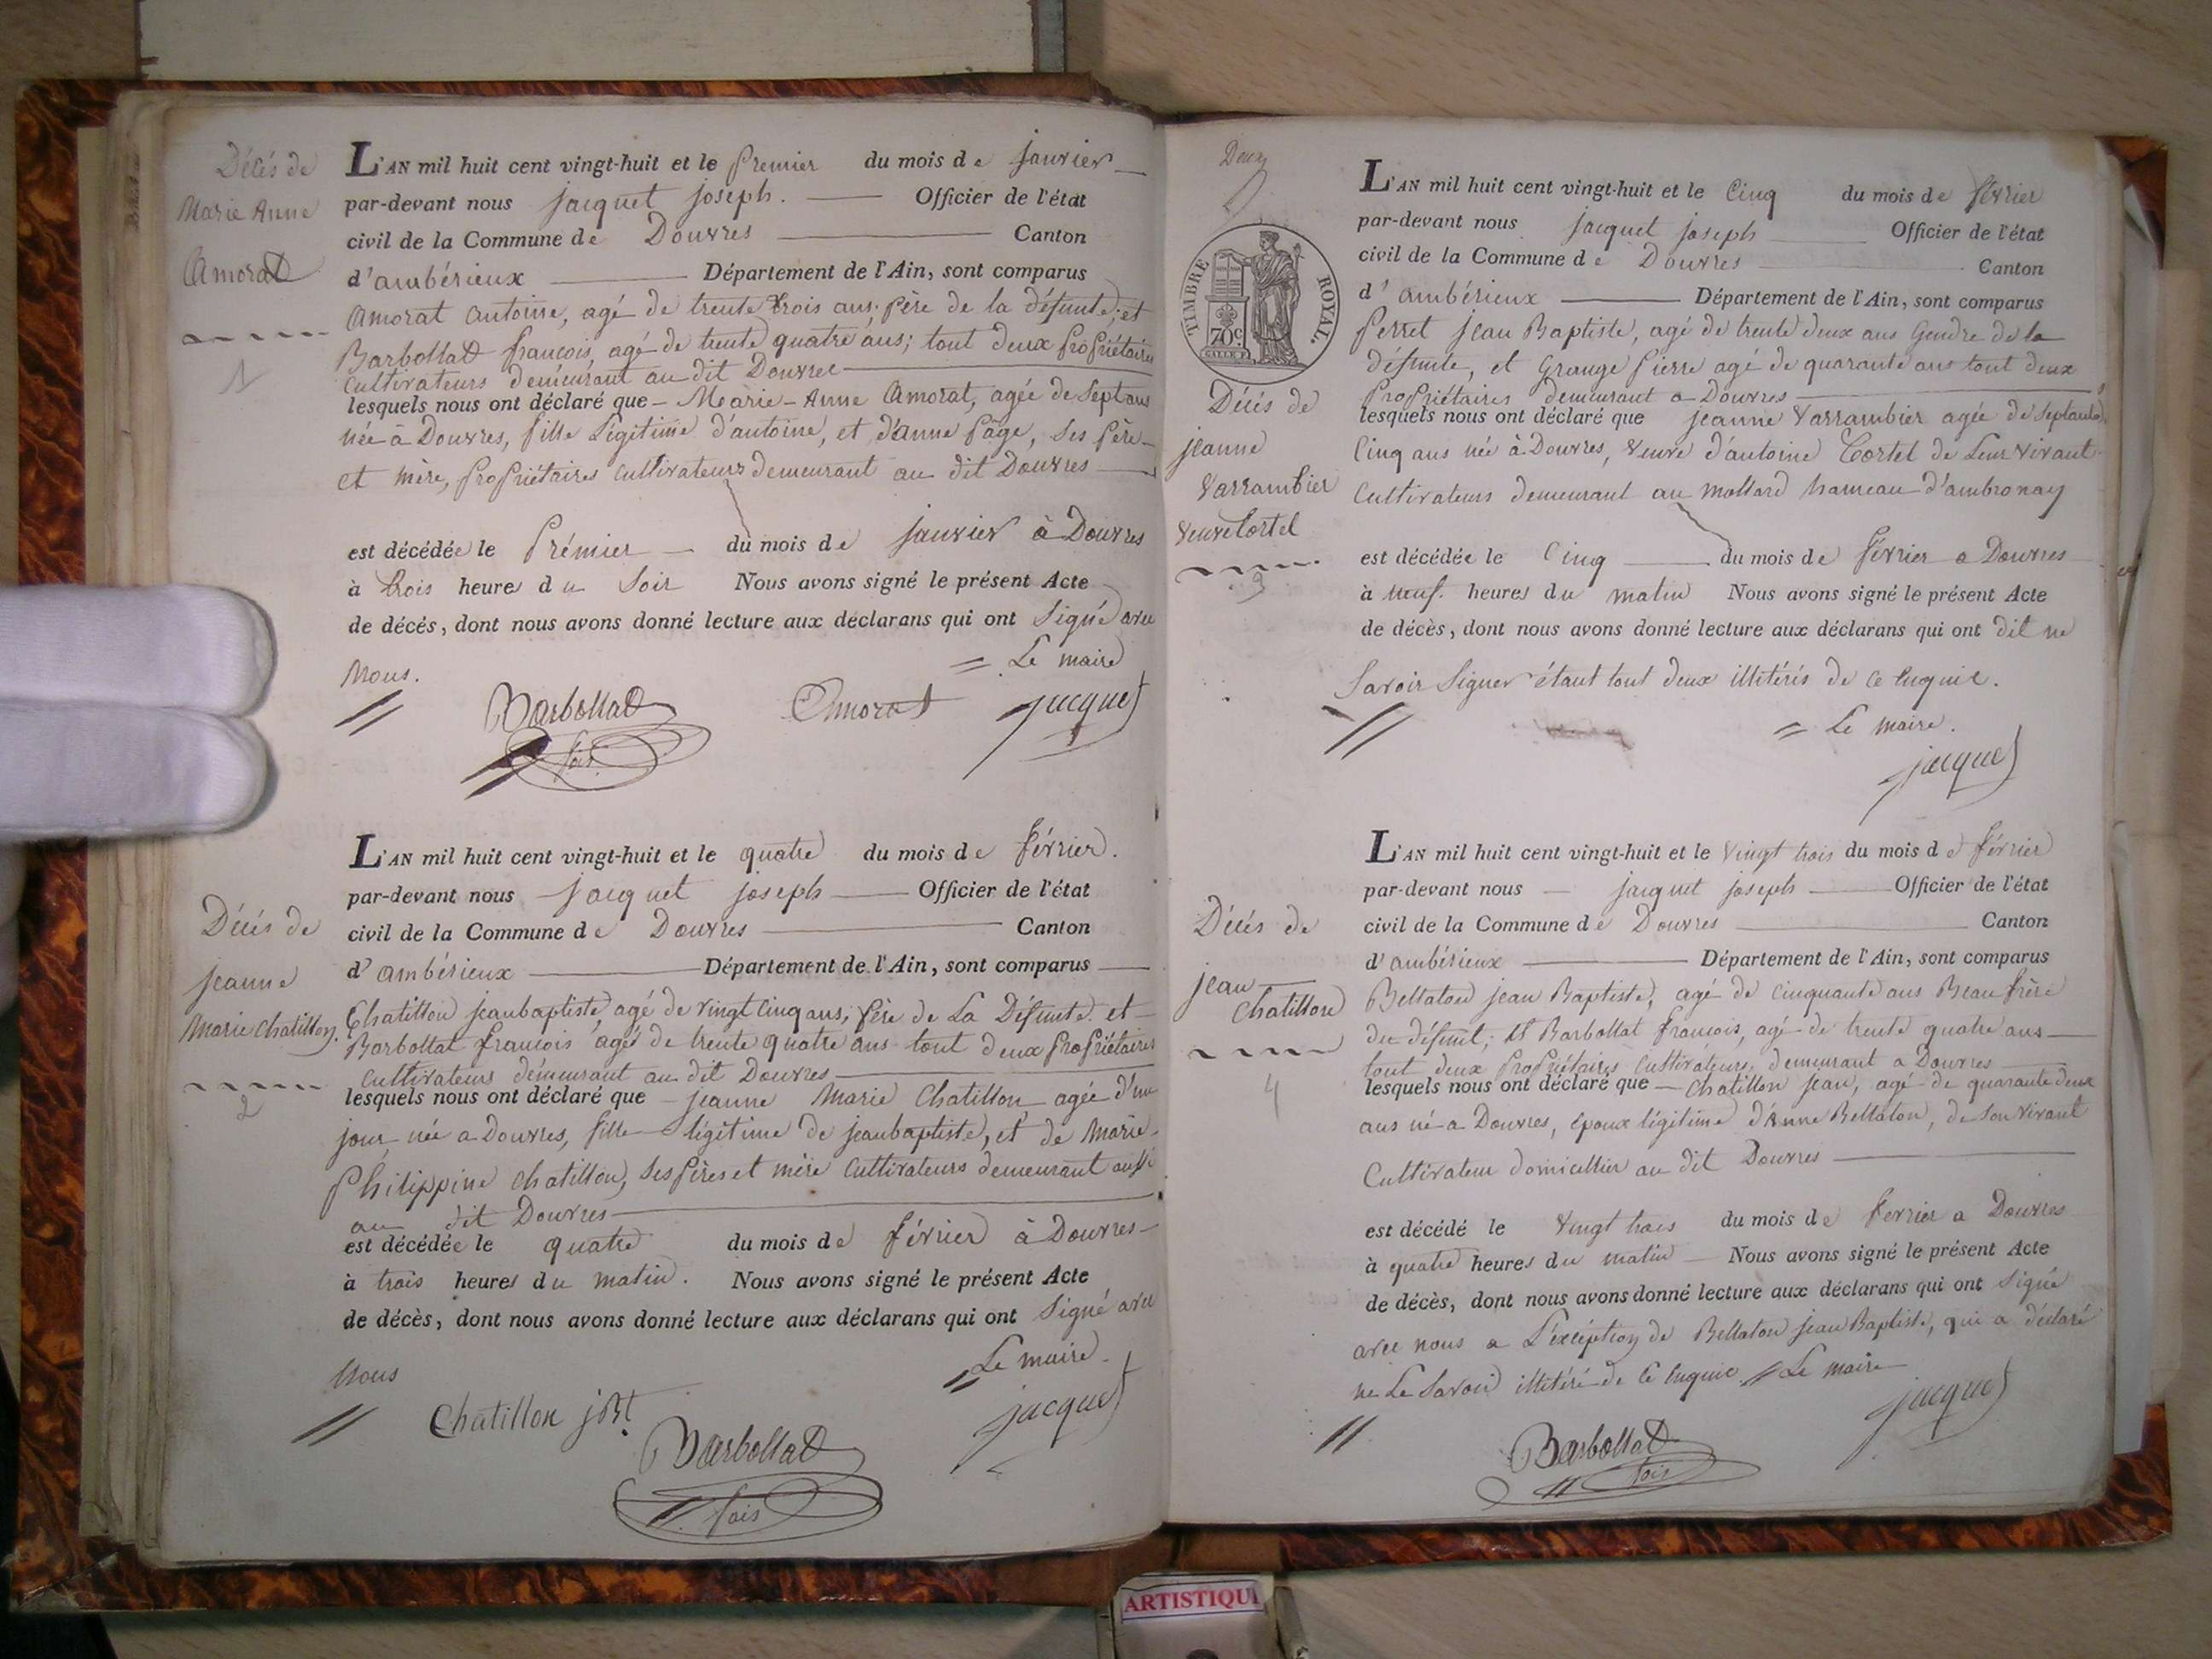 Décés de
Marie Anne
Amorat
1
L'AN mil huit cent vingt-huit et le premier du mois de janvier
par-devant nous jacquet joseph. Officier de l'état
civil de la Commune de Douvres Canton
d'ambérieux Département de l'Ain, sont comparus
Amorat antoine, agé de trente trois ans; père de la défunte; et
Barbollat françois, agé de trente quatre ans; tout deux propriétaires
cultivateurs demeurant au dit Douvres
lesquels nous ont déclaré que Marie-Anne Amorat, agée de sept ans
née à Douvres, fille légitime d'antoine, et d'Anne page, ses père
et mère, propriétaires cultivateurs demeurant au dit Douvres
est décédée le prémier du mois de janvier à Douvres
à trois heures du soir Nous avons signé le présent Acte
de décés, dont nous avons donné lecture aux déclarans qui ont signé avec
nous. = Le maire
Barbollat Amorat jacquet
fois
Décés de
jeanne
Marie chatillon.
2
L'AN mil huit cent vingt-huit et le quatre du mois de février.
par-devant nous jacquet joseph Officier de l'état
civil de la Commune de Douvres Canton
d'ambérieux Département de l'Ain, sont comparus
Chatillon jeanbaptiste, agé de vingt cinq ans, père de La Défunte et
Barbollat françois agé de trente quatre ans tout deux propriétaires
cultivateurs demeurant au dit Douvres
lesquels nous ont déclaré que jeanne Marie Chatillon agée d'un
jour née a Douvres, fille légitime de jeanbaptiste, et de Marie
philippine chatillon, ses pères et mère cultivateurs demeurant aussi
au dit Douvres
est décédée le quatre du mois de février à Douvres
à trois heures du matin. Nous avons signé le présent Acte
de décès, dont nous avons donné lecture aux déclarans qui ont signé avec
Nous = Le maire
Chatillon jBt Barbollat jacquet
fois
Deux
TIMBRE ROYAL.
70c
Décés de
jeanne
Varrambier
veuve Cortel
3
L'AN mil huit cent vingt-huit et le cinq du mois de février
par-devant nous jacquet joseph Officier de l'état
civil de la Commune de Douvres Canton
d'ambérieux Département de l'Ain, sont comparus
perret jean Baptiste, agé de trente deux ans Gendre de la
défunte, et Grange pierre agé de quarante ans tout deux
propriétaires demeurant a Douvres
lesquels nous ont déclaré que jeanne Varrambier agée de septante
Cinq ans née à Douvres, veuve d'antoine Cortel de Leur vivant
Cultivateurs demeurant au mollard hameau d'ambronay
est décédée le cinq du mois de février a Douvres
à neuf. heures du matin Nous avons signé le présent Acte
de décès, dont nous avons donné lecture aux déclarans qui ont dit ne
savoir signer étant tout deux illitérés de ce enquie.
= Le maire.
jacquet
Décés de
jean
Chatillon
4
L'AN mil huit cent vingt-huit et le vingt trois du mois de février
par-devant nous jacquet joseph Officier de l'état
civil de la Commune de Douvres Canton
d'ambérieux Département de l'Ain, sont comparus
Bellaton jean Baptiste, agé de cinquante ans Beau frère
du défunt; et Barbollat françois, agé de trente quatre ans
tout deux propriétaires cultivateurs, demeurant a Douvres
lesquels nous ont déclaré que Chatillon jean, agé de quarante deux
ans né a Douvres, epoux légitime d'Anne Bellaton, de son vivant
Cultivateur domicillier au dit Douvres
est décédé le vingt trois du mois de fevrier a Douvres
à quatre heures du matin Nous avons signé le présent Acte
de décès, dont nous avons donné lecture aux déclarans qui ont signé
avec nous a L'éxcéption de Bellaton jean Baptiste, qui a déclaré
ne Le savoir illitéré de ce enquie = Le maire
Barbollat jacquet
fois
ARTISTIQU